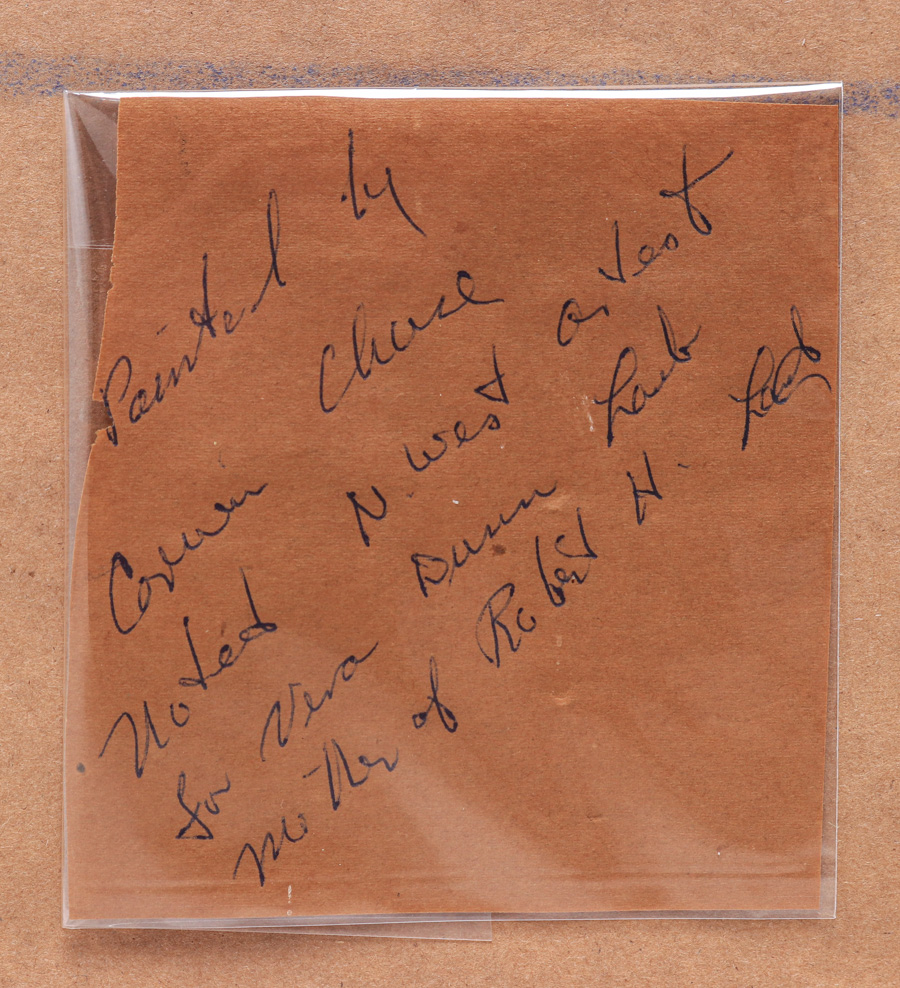 Painted by
Corwin Chase
Noted N. West artest
for Vera Dunn Laub
Mother of Robert H. Laub